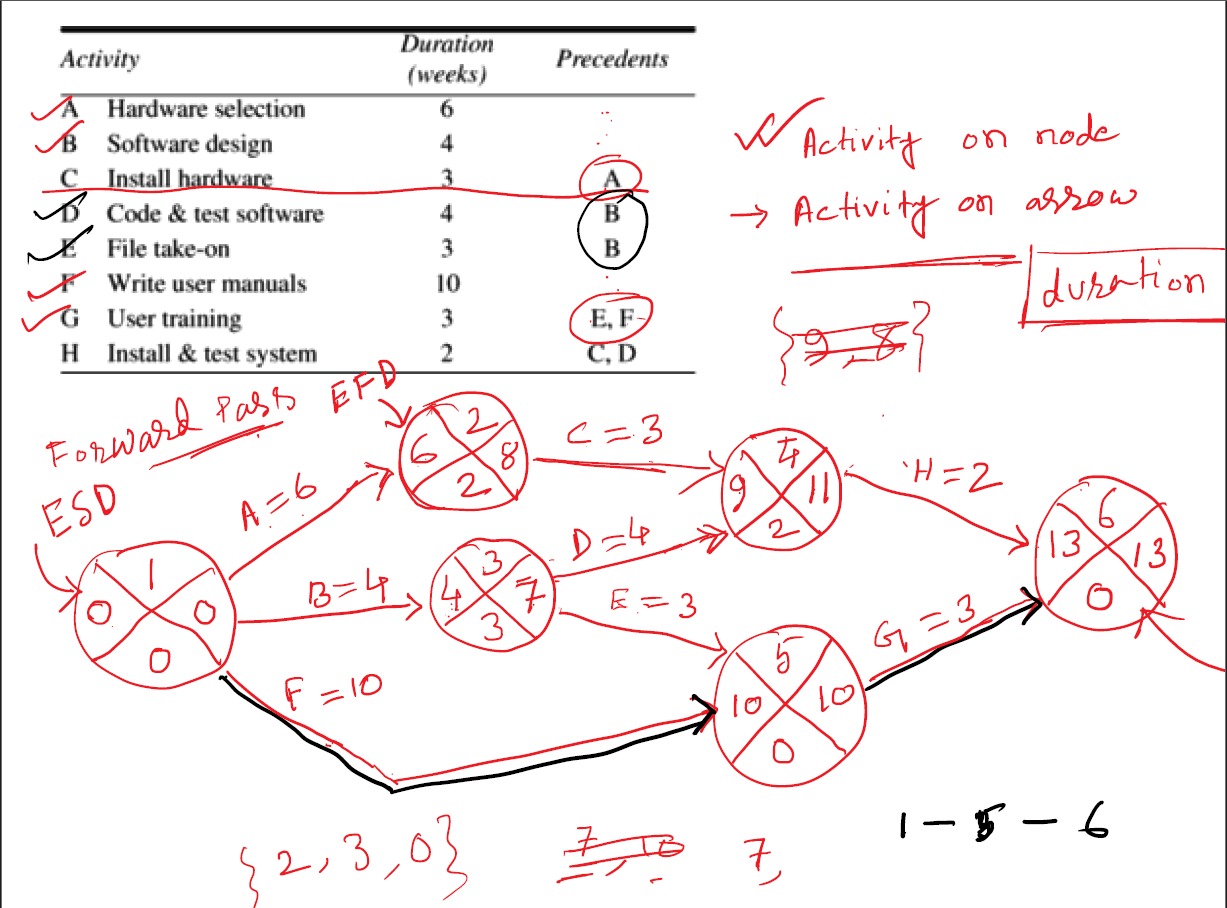 Activity Duration (weeks) Precedents
A Hardware selection 6
B Software design 4
C Install hardware 3 A
D Code & test software 4 B
E File take-on 3 B
F Write user manuals 10
G User training 3 E, F
H Install & test system 2 C, D
Activity on node
→ Activity on arrow
duration
{9, 8}
Forward Pass
EFD
ESD
2
6 8
2
C = 3
4
9 11
2
H = 2
A = 6
6
13 13
0
1
0 0
0
B = 4
3
4 7
3
D = 4
E = 3
5
10 10
0
G = 3
F = 10
1 - 5 - 6
{2, 3, 0}
7 10
7,